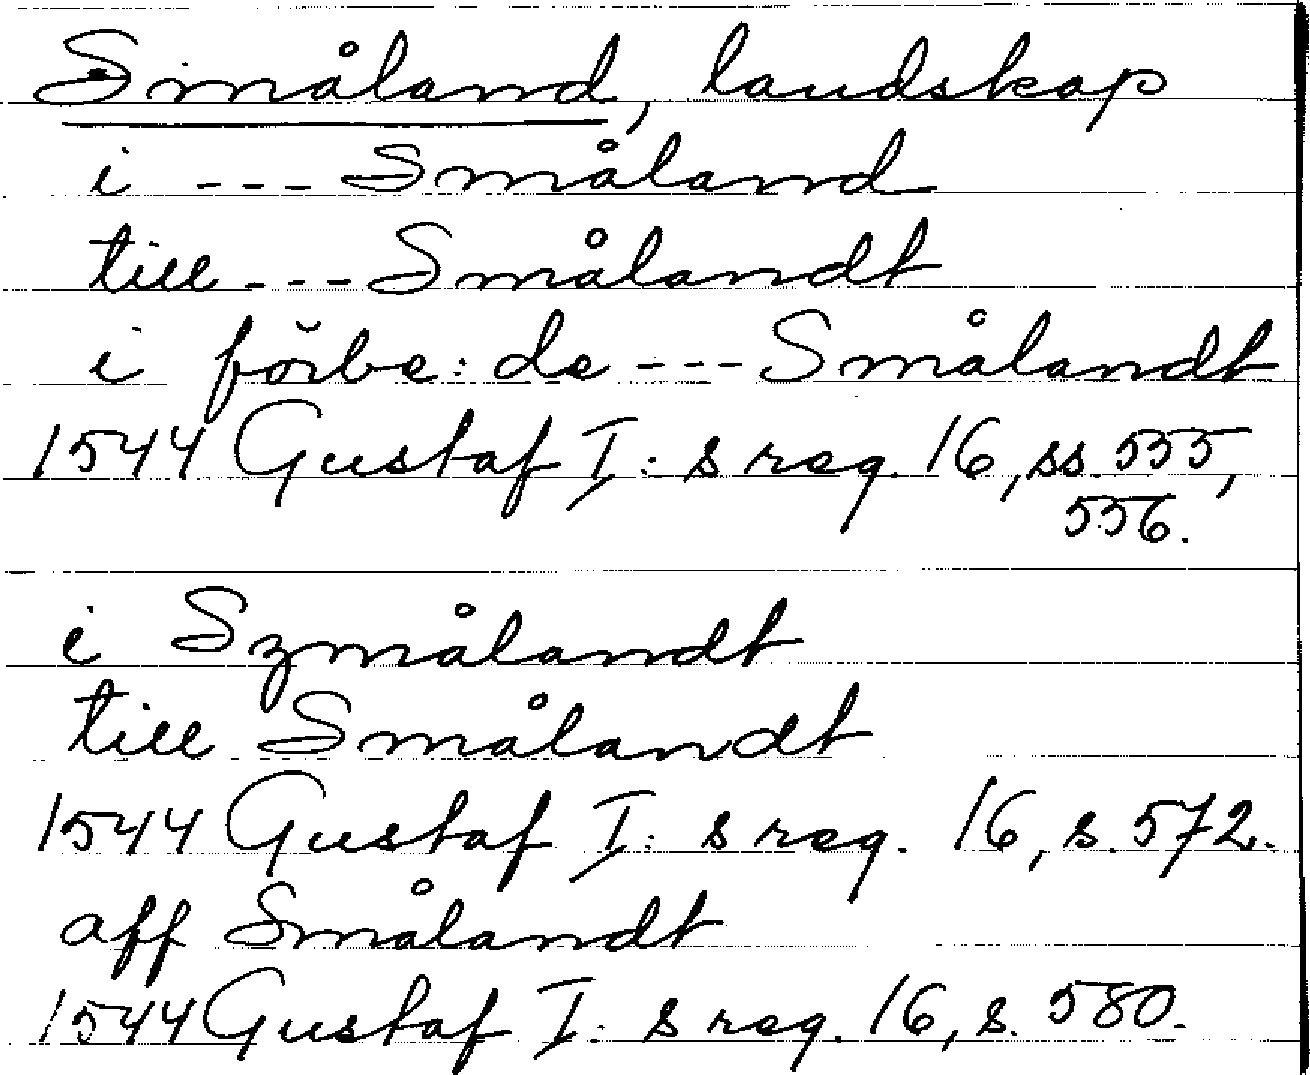 Småland, landskap
i --- Småland
till --- Smålandt
i förbe: de --- Smålandt
1544 Gustaf I: s reg. 16, ss. 555,
556.
i Szmålandt
till Smålandt
1544 Gustaf I: s reg. 16, s. 572.
aff Smålandt
1544 Gustaf I: s reg. 16, s. 580.